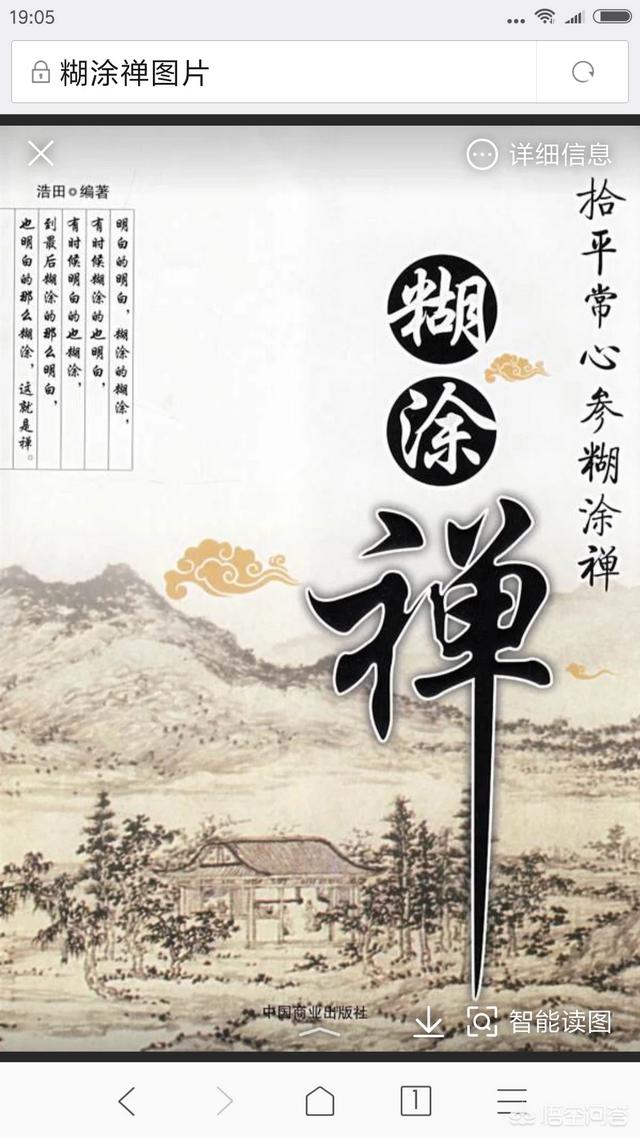 19:05
糊涂禅图片
详细信息
浩田◎编著
明白的明白，糊涂的糊涂，
有时候糊涂的也明白，
有时候明白的也糊涂，
到最后糊涂的那么明白，
也明白的那么糊涂，这就是禅。
拾平常心参糊涂禅
糊涂禅
中国商业出版社
智能读图
1
悟空问答